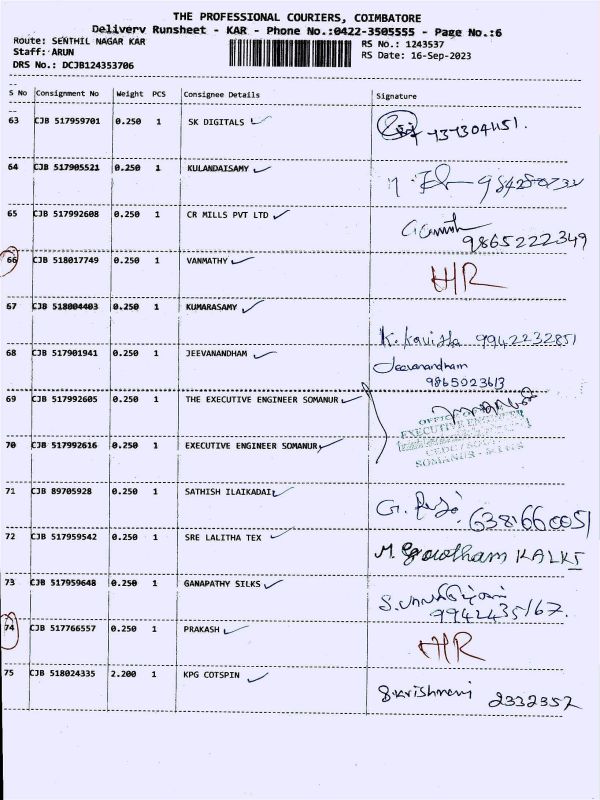 THE PROFESSIONAL COURIERS, COIMBATORE
Delivery Runsheet - KAR - Phone No.:0422-3505555 - Page No.:6
Route: SENTHIL NAGAR KAR
RS No.: 1243537
Staff: ARUN
RS Date: 16-Sep-2023
DRS No.: DCJB124353706
S No Consignment No Weight PCS Consignee Details Signature
63 CJB 517959701 0.250 1 SK DIGITALS
64 CJB 517905521 0.250 1 KULANDAISAMY
65 CJB 517992608 0.250 1 CR MILLS PVT LTD
9865222349
66 CJB 518017749 0.250 1 VANMATHY HR
67 CJB 518004403 0.250 1 KUMARASAMY
K. Kavitha 9942232851
68 CJB 517901941 0.250 1 JEEVANANDHAM Jeevanandham
9865023613
69 CJB 517992605 0.250 1 THE EXECUTIVE ENGINEER SOMANUR
EXECUTIVE ENGINEER
70 CJB 517992616 0.250 1 EXECUTIVE ENGINEER SOMANUR
71 CJB 89705928 0.250 1 SATHISH ILAIKADAI
6381660051
72 CJB 517959542 0.250 1 SRE LALITHA TEX M. Gowtham KALKI
73 CJB 517959648 0.250 1 GANAPATHY SILKS
9942435167.
74 CJB 517766557 0.250 1 PRAKASH HR
75 CJB 518024335 2.200 1 KPG COTSPIN
2332352